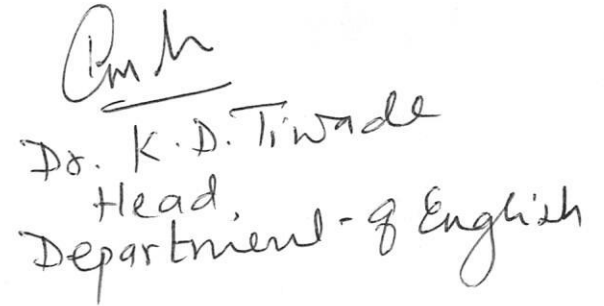 Dr. K. D. Tiwade
Head,
Department of English